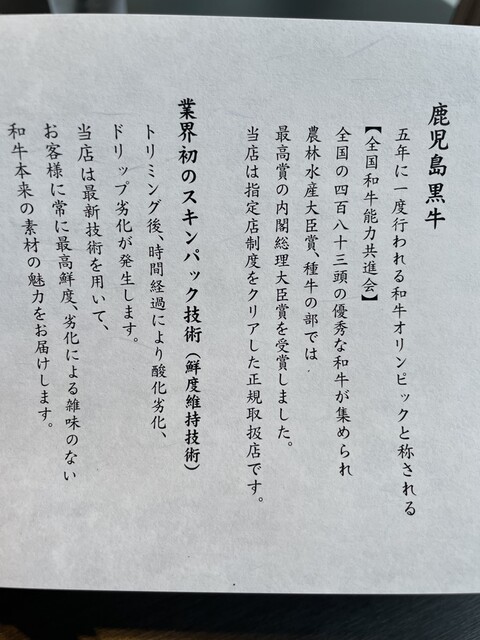 鹿児島黒牛
五年に一度行われる和牛オリンピックと称される
【全国和牛能力共進会】
全国の四百八十三頭の優秀な和牛が集められ
農林水産大臣賞、種牛の部では
最高賞の内閣総理大臣賞を受賞しました。
当店は指定店制度をクリアした正規取扱店です。
業界初のスキンパック技術（鮮度維持技術）
トリミング後、時間経過により酸化劣化、
ドリップ劣化が発生します。
当店は最新技術を用いて、
お客様に常に最高鮮度、劣化による雑味のない
和牛本来の素材の魅力をお届けします。